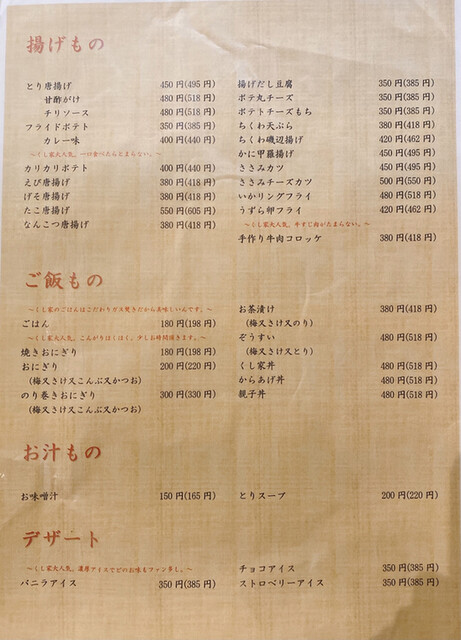 揚げもの
とり唐揚げ 450円(495円)
甘酢がけ 480円(518円)
チリソース 480円(518円)
フライドポテト 350円(385円)
カレー味 400円(440円)
～くし家大人気。一口食べたらとまらない。～
カリカリポテト 400円(440円)
えび唐揚げ 380円(418円)
げそ唐揚げ 380円(418円)
たこ唐揚げ 550円(605円)
なんこつ唐揚げ 380円(418円)
揚げだし豆腐 350円(385円)
ポテ丸チーズ 350円(385円)
ポテトチーズもち 350円(385円)
ちくわ天ぷら 380円(418円)
ちくわ磯辺揚げ 420円(462円)
かに甲羅揚げ 450円(495円)
ささみカツ 450円(495円)
ささみチーズカツ 500円(550円)
いかリングフライ 480円(518円)
うずら卵フライ 420円(462円)
～くし家大人気。牛すじ肉がたまらない。～
手作り牛肉コロッケ 380円(418円)
ご飯もの
～くし家のごはんはこだわりガス焚きだから美味しいんです。～
ごはん 180円(198円)
～くし家大人気。こんがりほくほく。少しお時間頂きます。～
焼きおにぎり 180円(198円)
おにぎり 200円(220円)
(梅又さけ又こんぶ又かつお)
のり巻きおにぎり 300円(330円)
(梅又さけ又こんぶ又かつお)
お茶漬け 380円(418円)
(梅又さけ又のり)
ぞうすい 480円(518円)
(梅又さけ又とり)
くし家丼 480円(518円)
からあげ丼 480円(518円)
親子丼 480円(518円)
お汁もの
お味噌汁 150円(165円)
とりスープ 200円(220円)
デザート
～くし家大人気。濃厚アイスでどのお味もファン多し。～
バニラアイス 350円(385円)
チョコアイス 350円(385円)
ストロベリーアイス 350円(385円)